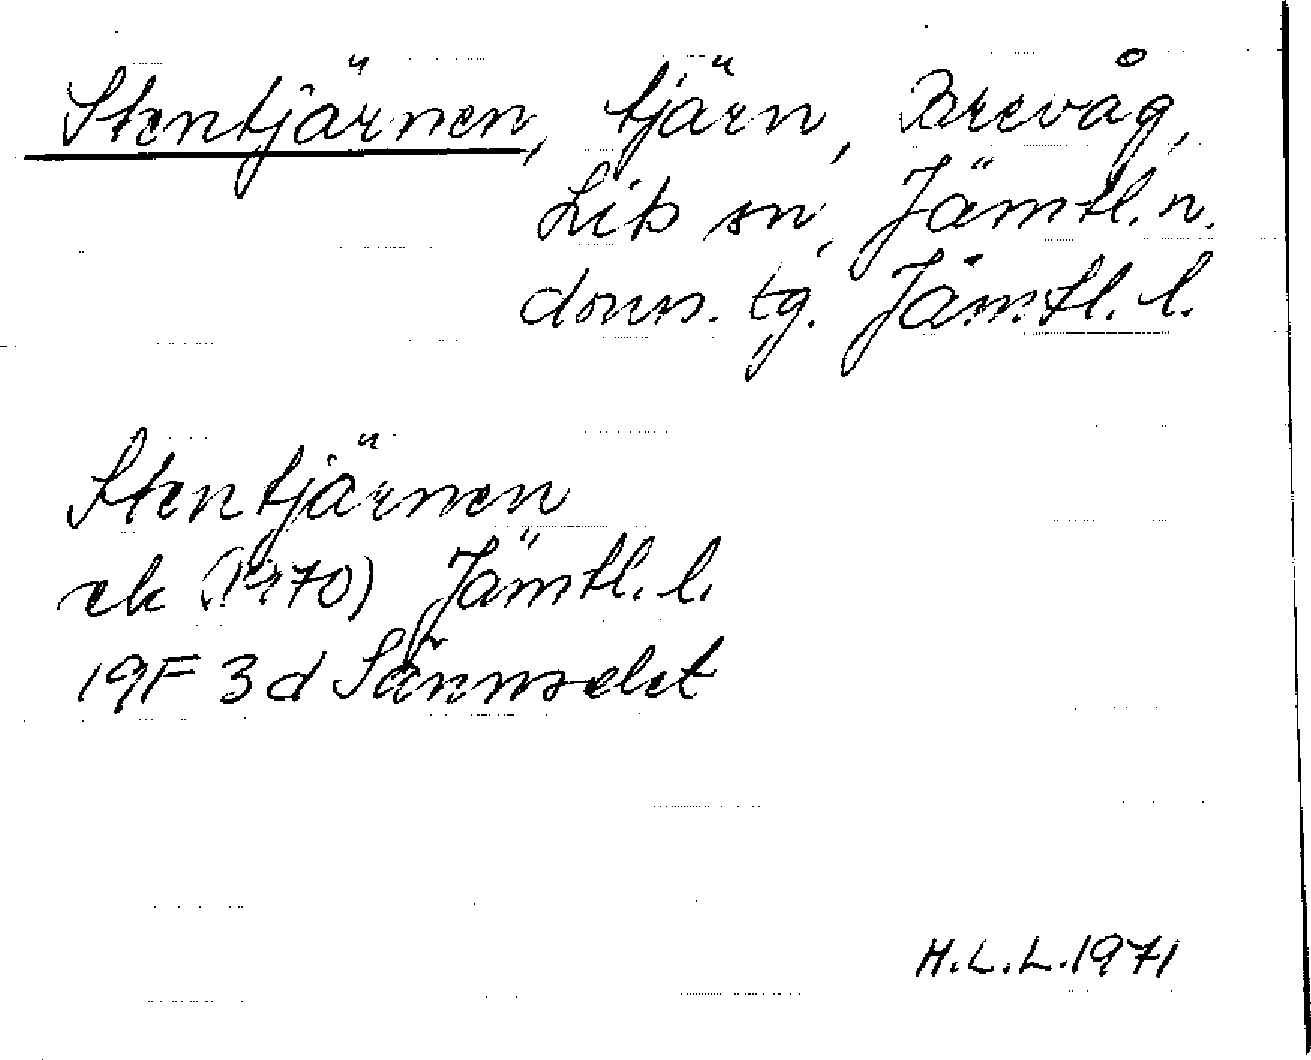 Stentjärnen, tjärn, Brevåg,
Lits sn, Jämtl. n.
doms. tg. Jämtl. l.
Stentjärnen
ek (1970) Jämtl. l.
19F 3d Sännselet
H.L.L. 1971